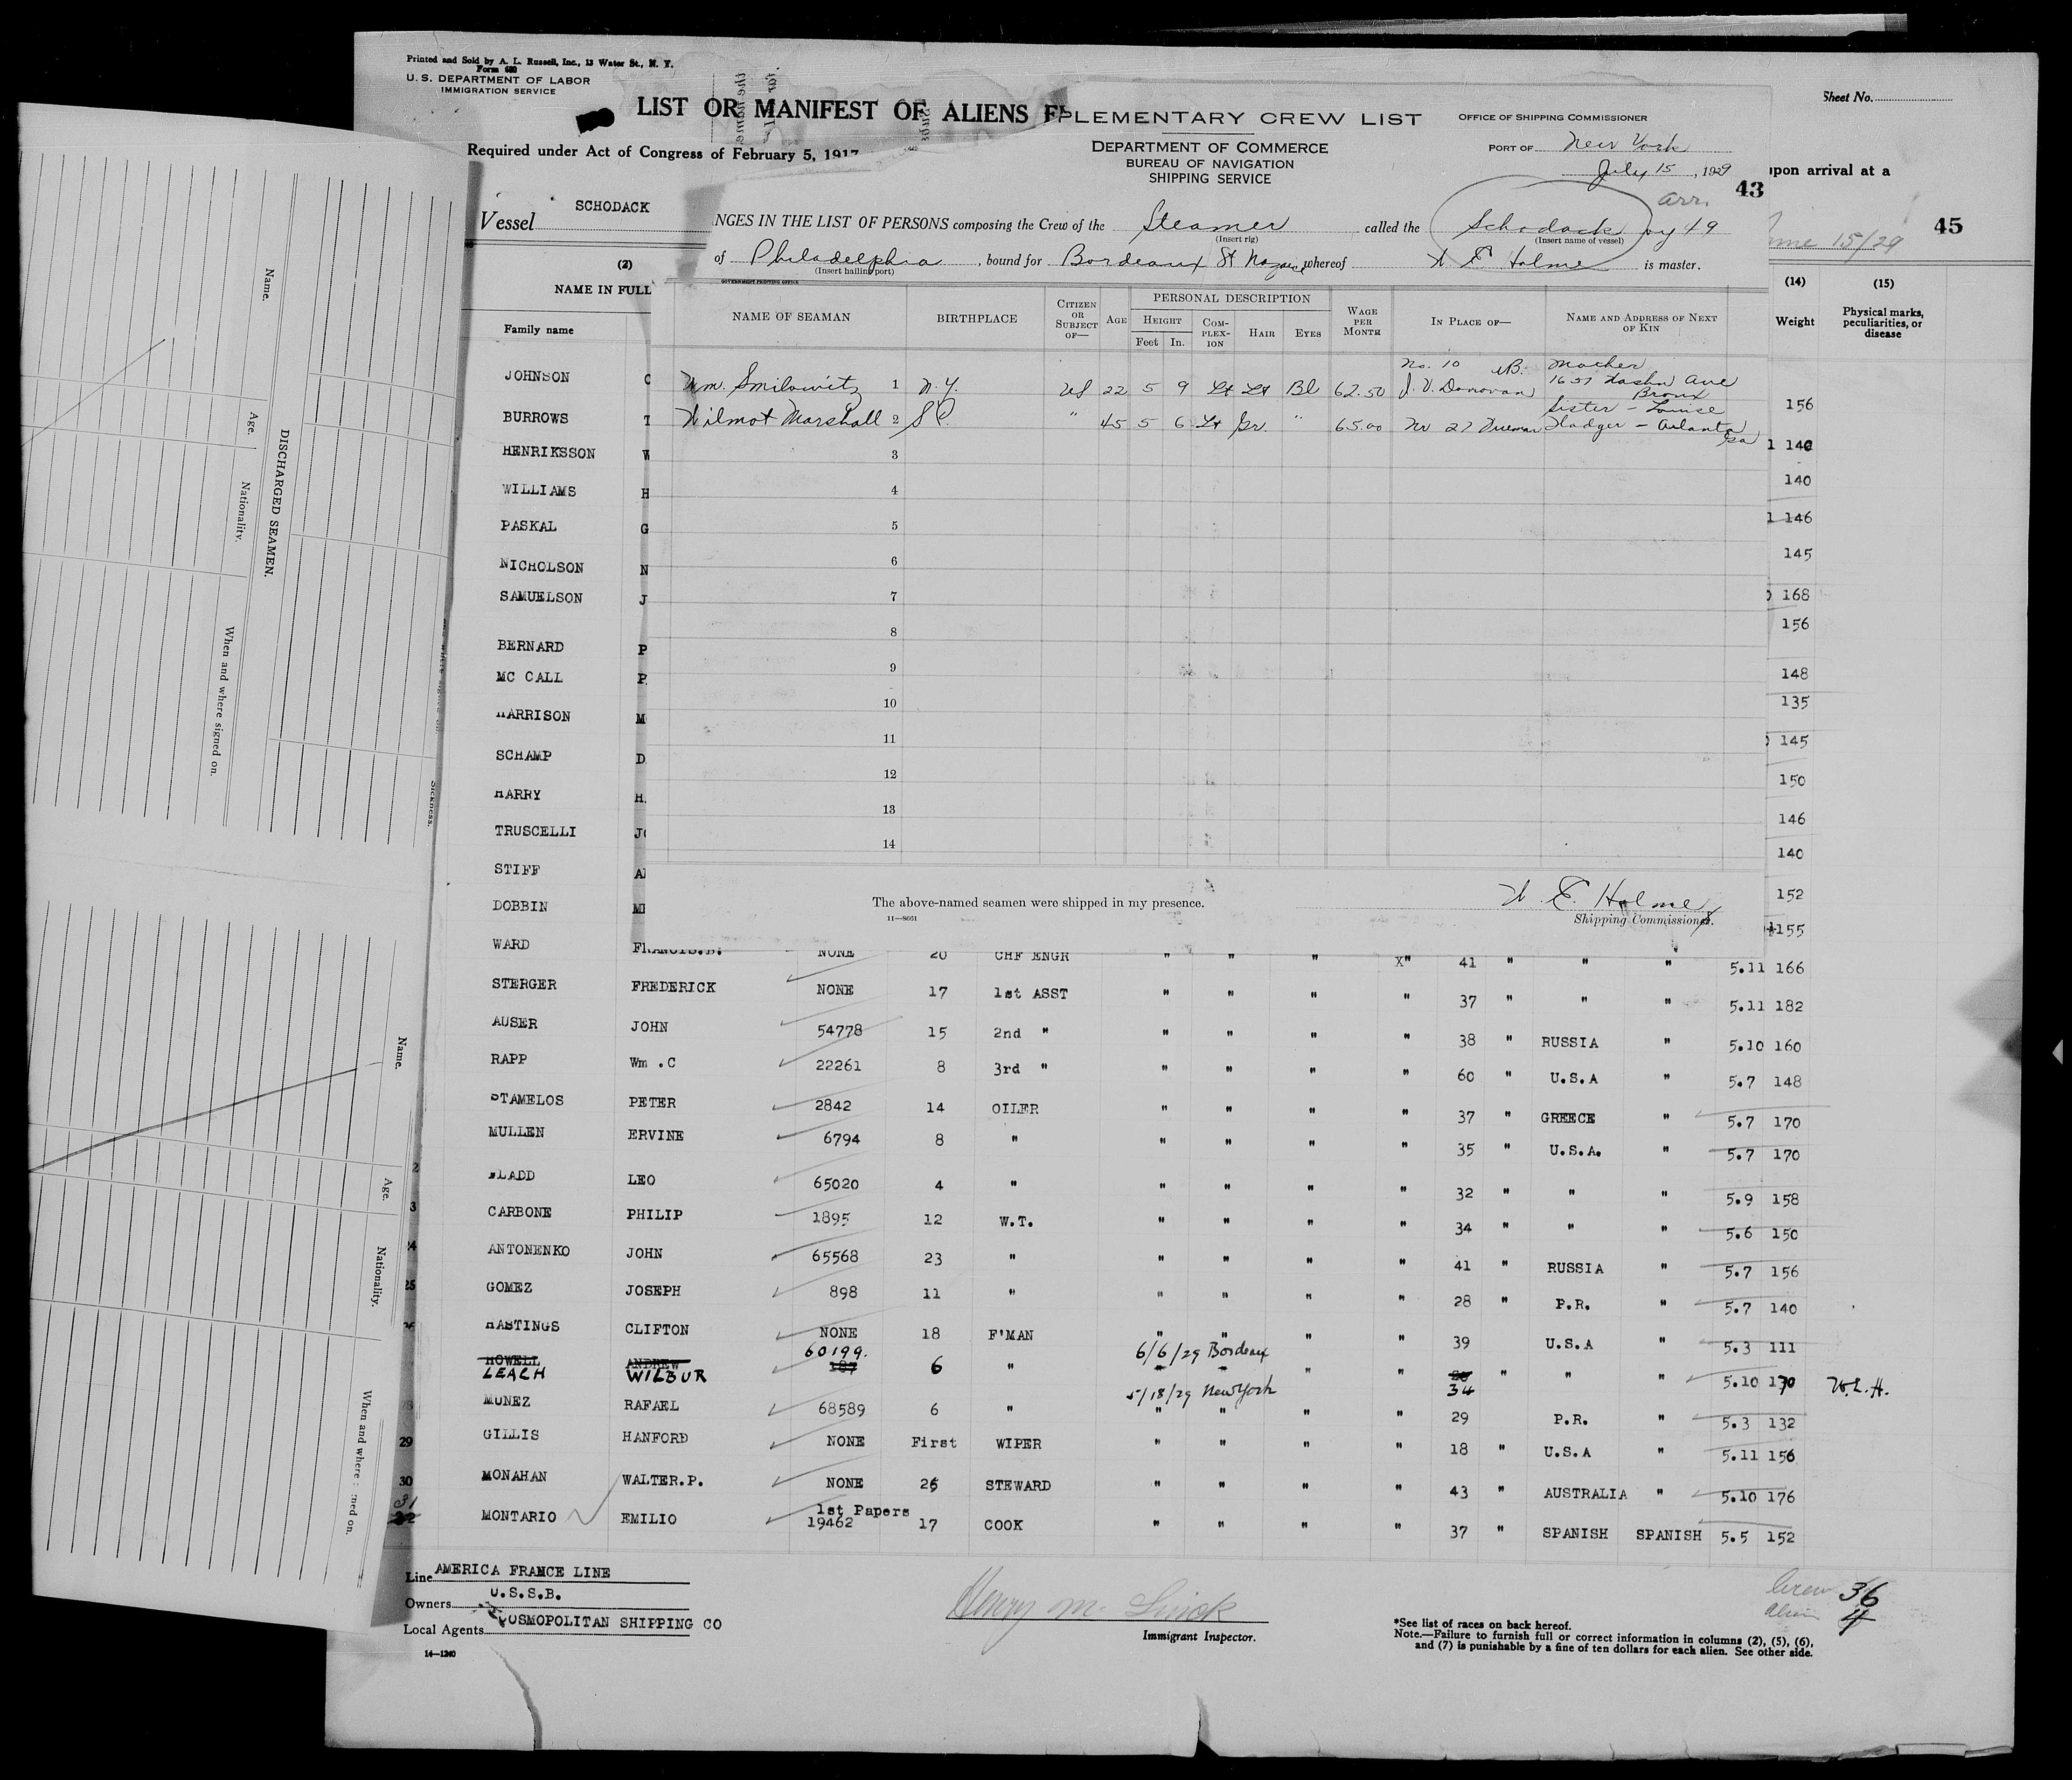 Printed and Sold by A. L. Russell, Inc., 13 Water St., N. Y.
Form 680
U. S. DEPARTMENT OF LABOR
IMMIGRATION SERVICE
LIST OR MANIFEST OF ALIENS
Required under Act of Congress of February 5, 1917
Vessel SCHODACK
(2)
NAME IN FULL
Family name
Sheet No.
upon arrival at a
15/29
45
(14) (15)
Weight Physical marks, peculiarities, or disease
PLEMENTARY CREW LIST
DEPARTMENT OF COMMERCE
BUREAU OF NAVIGATION
SHIPPING SERVICE
OFFICE OF SHIPPING COMMISSIONER
PORT OF New York
July 15, 1929
arr.
43
NGES IN THE LIST OF PERSONS composing the Crew of the Steamer called the Schodack voy 49
(Insert rig) (Insert name of vessel)
of Philadelphia, bound for Bordeaux St Nazaire whereof W E Holme is master.
(Insert hailing port)
GOVERNMENT PRINTING OFFICE
NAME OF SEAMAN BIRTHPLACE CITIZEN OR SUBJECT OF— AGE PERSONAL DESCRIPTION WAGE PER MONTH IN PLACE OF— NAME AND ADDRESS OF NEXT OF KIN
HEIGHT COM-PLEX-ION HAIR EYES
Feet In.
No. 10 Mother
Wm. Smilowitz 1 N.Y. US 22 5 9 Lt Lt Bl 62.50 J. V. Donovan 1657 Ave
Bronx
Sister - Louise
Wilmot Marshall 2 S C. " 45 5 6 Lt Gr. " 65.00 No 27 - Atlanta
Ga
3
4
5
6
7
8
9
10
11
12
13
14
The above-named seamen were shipped in my presence.
11—8661
W. E. Holme
Shipping Commissioner.
JOHNSON
BURROWS 156
HENRIKSSON 140
WILLIAMS 140
PASKAL 146
NICHOLSON 145
SAMUELSON 168
156
BERNARD
MC CALL 148
HARRISON 135
SCHAMP 145
HARRY 150
TRUSCELLI 146
STIFF 140
DOBBIN 152
155
WARD FRANCIS.B. NONE 20 CHF ENGR " " " X" 41 " " " 5.11 166
STERGER FREDERICK NONE 17 1st ASST " " " " 37 " " " 5.11 182
AUSER JOHN 54778 15 2nd " " " " " 38 " RUSSIA " 5.10 160
RAPP Wm .C 22261 8 3rd " " " " " 60 " U.S.A " 5.7 148
STAMELOS PETER 2842 14 OILER " " " " 37 " GREECE " 5.7 170
MULLEN ERVINE 6794 8 " " " " " 35 " U.S.A. " 5.7 170
LADD LEO 65020 4 " " " " " 32 " " " 5.9 158
CARBONE PHILIP 1895 12 W.T. " " " " 34 " " " 5.6 150
ANTONENKO JOHN 65568 23 " " " " " 41 " RUSSIA " 5.7 156
25 GOMEZ JOSEPH 898 11 " " " " " 28 " P.R. " 5.7 140
HASTINGS CLIFTON NONE 18 F'MAN " " " " 39 " U.S.A " 5.3 111
60199. 6/6/29 Bordeaux
HOWELL ANDREW 187
LEACH WILBUR 6 " " " " " 34 " " " 5.10 170 W.L.H.
5/18/29 New York
MUNEZ RAFAEL 68589 6 " " " " " 29 P.R. " 5.3 132
29 GILLIS HANFORD NONE First WIPER " " " " 18 " U.S.A " 5.11 156
30 MONAHAN WALTER.P. NONE 26 STEWARD " " " " 43 " AUSTRALIA " 5.10 176
1st Papers
31 MONTARIO EMILIO 19462 17 COOK " " " " 37 " SPANISH SPANISH 5.5 152
Line AMERICA FRANCE LINE
Owners U.S.S.B.
Local Agents COSMOPOLITAN SHIPPING CO
14—1240
Immigrant Inspector.
Crew 36
alien 4
*See list of races on back hereof.
Note.—Failure to furnish full or correct information in columns (2), (5), (6),
and (7) is punishable by a fine of ten dollars for each alien. See other side.
DISCHARGED SEAMEN.
Name. Age. Nationality. When and where signed on.
Sickness.
Name. Age. Nationality. When and where signed on.